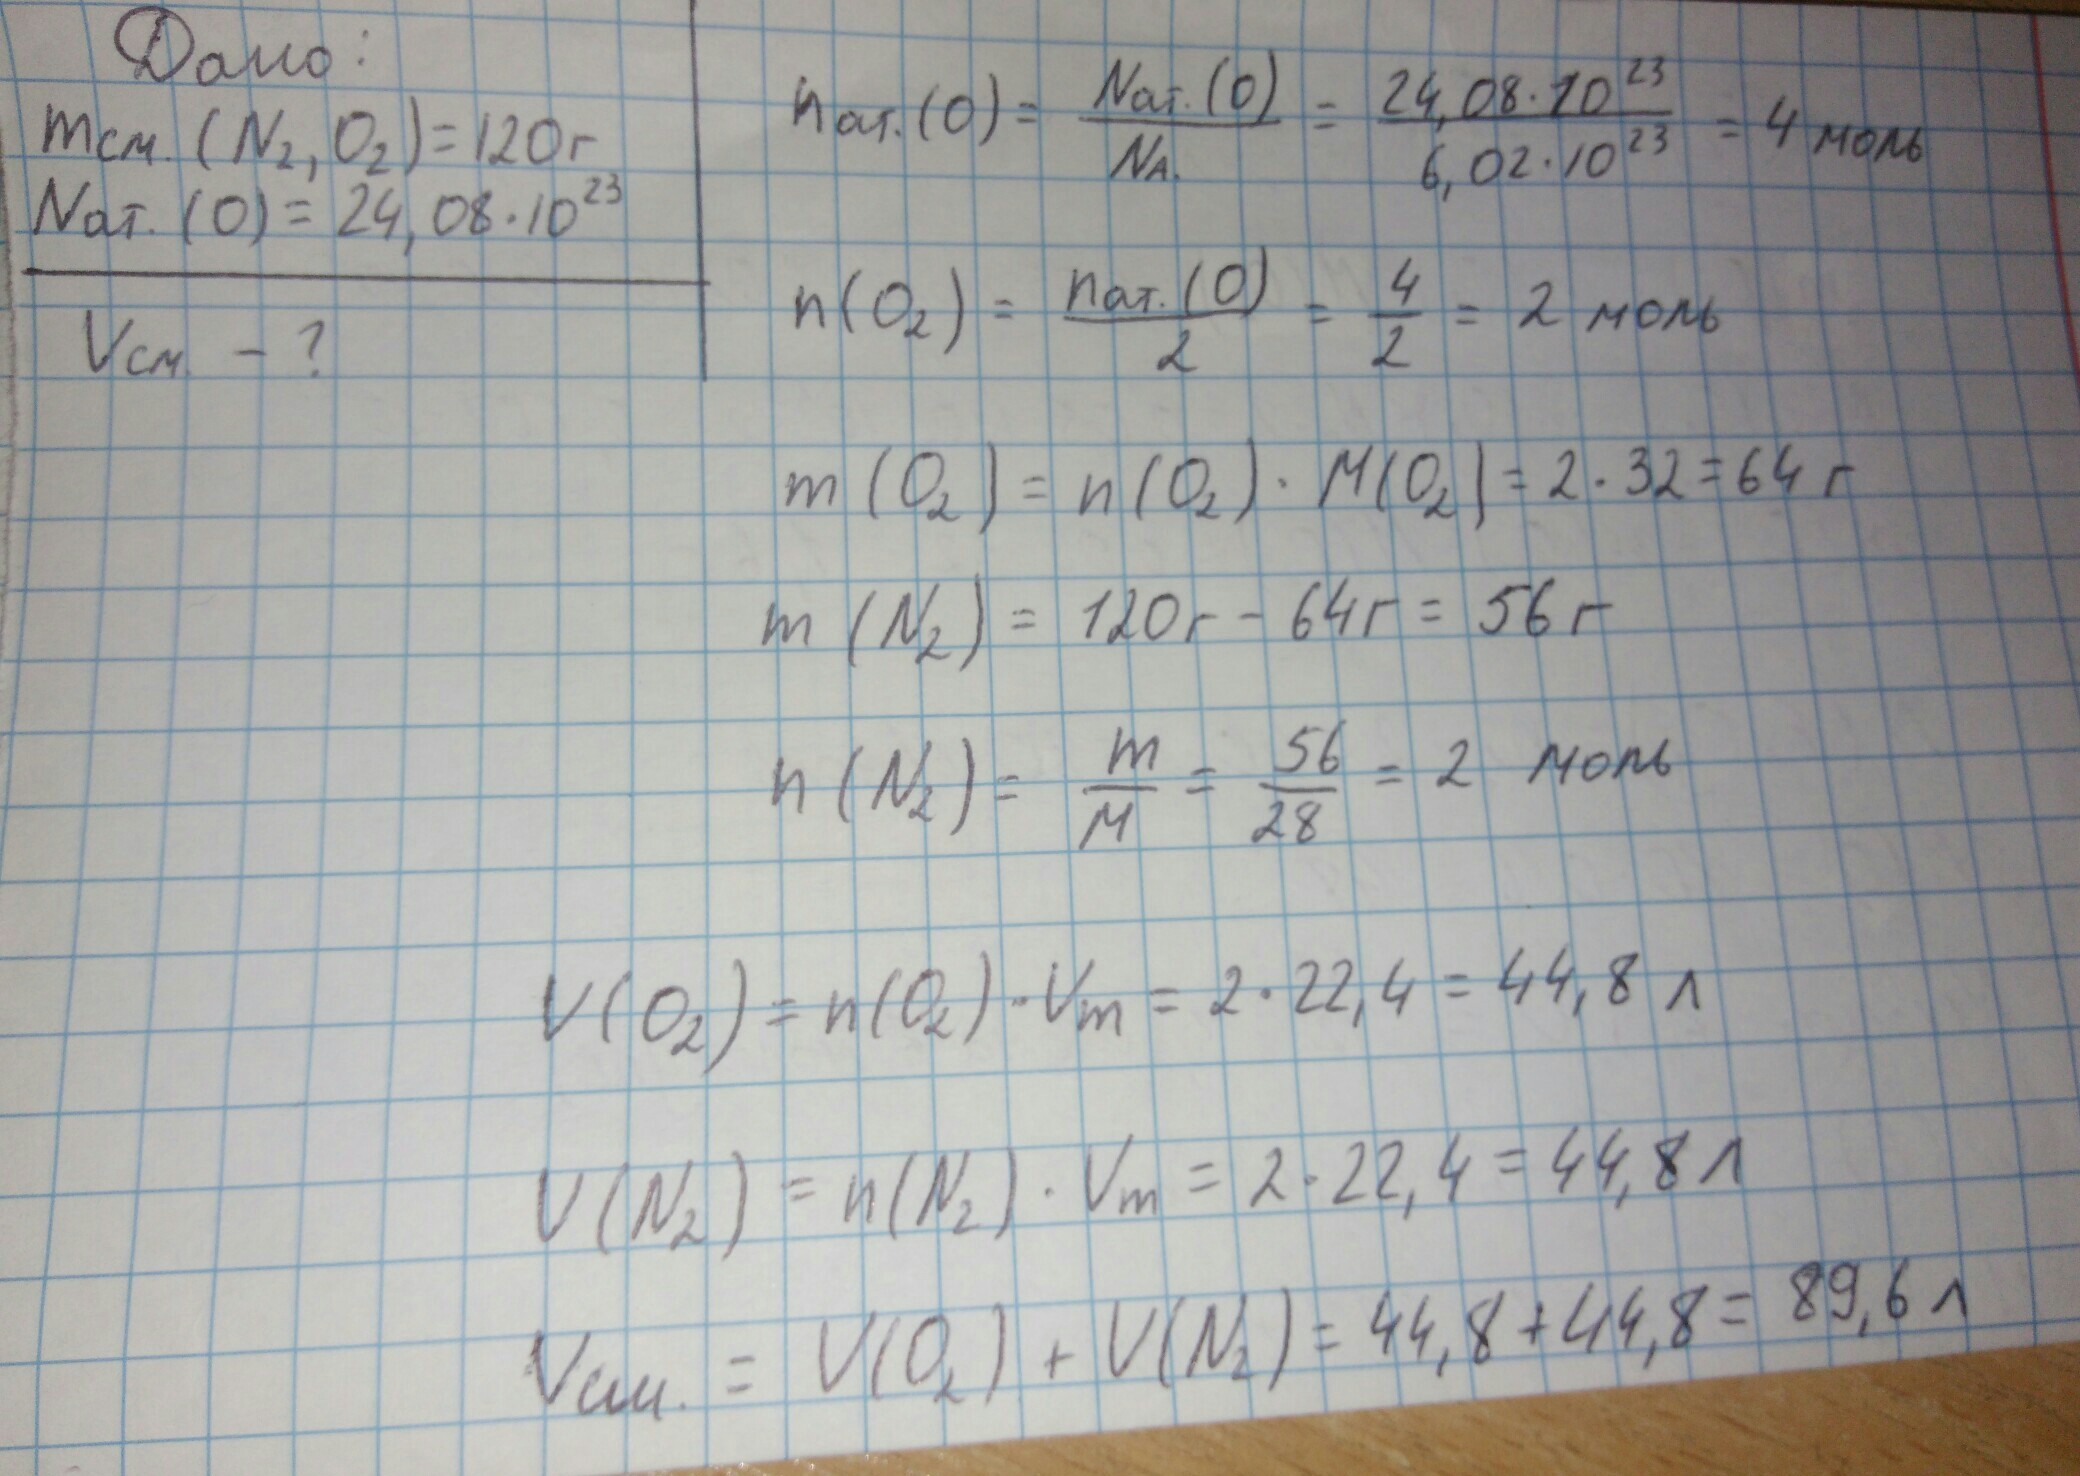 Дано:
mсм. (N₂, O₂) = 120 г
Nат. (O) = 24,08·10²³
Vсм. - ?
nат. (O) = Nат. (O) / NA. = 24,08·10²³ / 6,02·10²³ = 4 моль
n(O₂) = nат. (O) / 2 = 4 / 2 = 2 моль
m (O₂) = n (O₂) · M(O₂) = 2 · 32 = 64 г
m (N₂) = 120 г - 64 г = 56 г
n (N₂) = m / M = 56 / 28 = 2 моль
V(O₂) = n(O₂) · Vm = 2 · 22,4 = 44,8 л
V(N₂) = n(N₂) · Vm = 2 · 22,4 = 44,8 л
Vсм. = V(O₂) + V(N₂) = 44,8 + 44,8 = 89,6 л